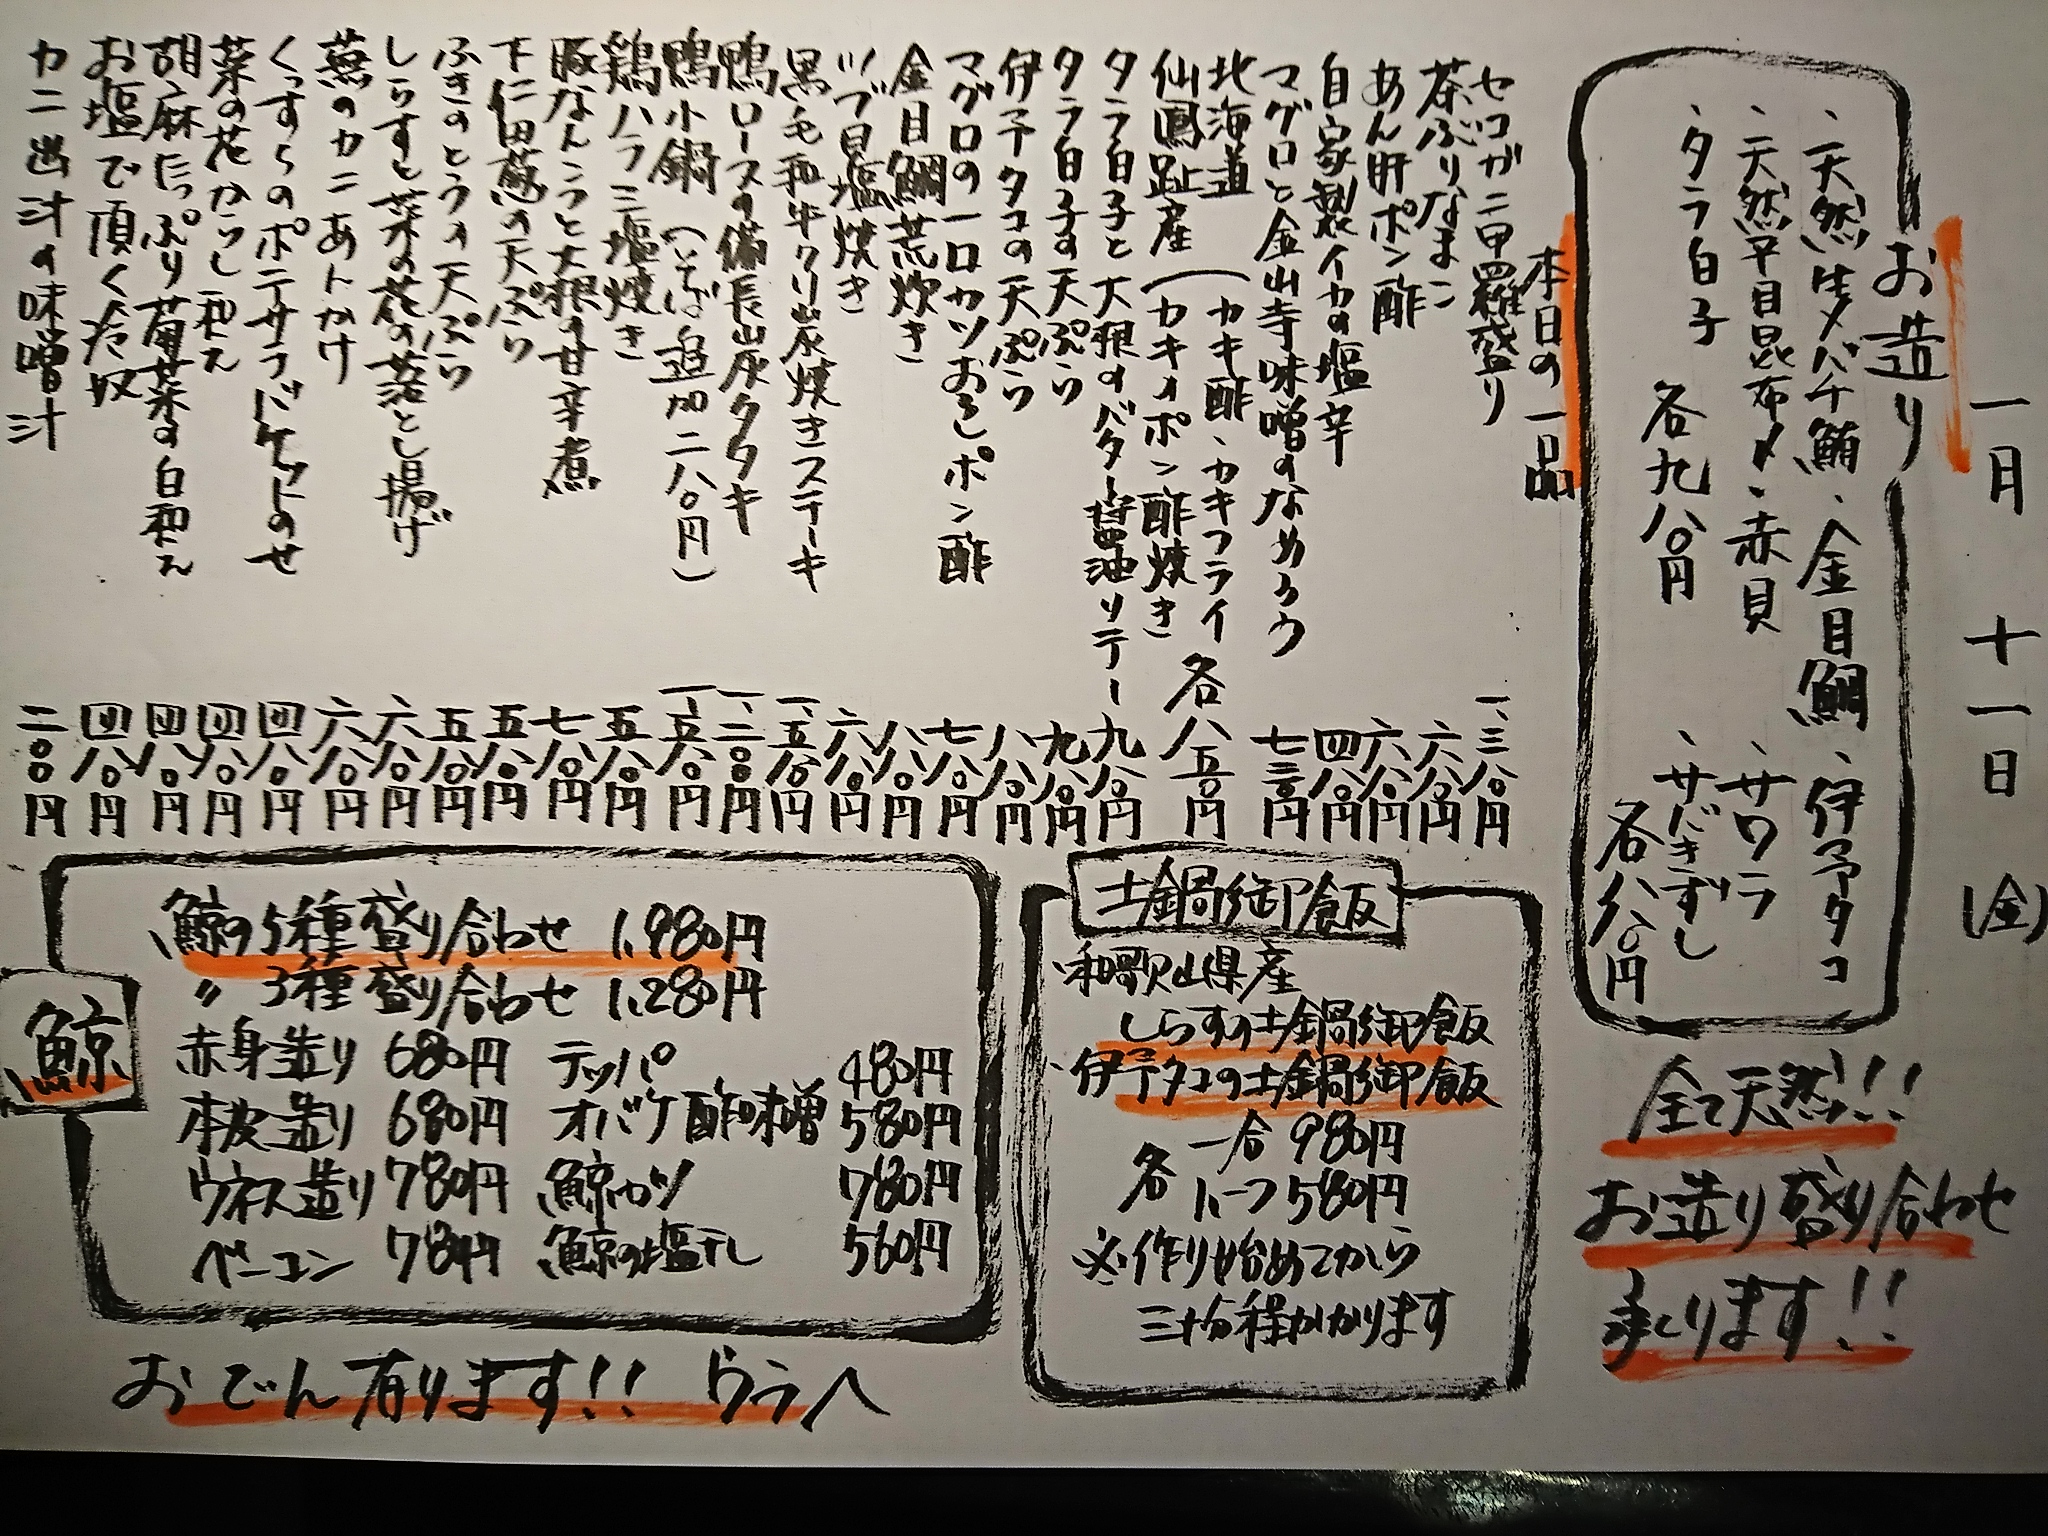 一月 十一日 (金)
お造り
・天然生メバチ鮪・金目鯛・伊予タコ
・天然平目昆布〆・赤貝・サワラ
・タラ白子・サバきずし
各九八〇円
各八八〇円
全て天然!!
お造り盛り合わせ
承ります!!
本日の一品
セコガニ甲羅盛り 一、三八〇円
茶ぶりなまこ 六八〇円
あん肝ポン酢 六八〇円
自家製イカの塩辛 四八〇円
マグロと金山寺味噌のなめろう 七三〇円
北海道 仙鳳趾産(カキ酢・カキフライ
(カキのポン酢焼き 各八五〇円
タラ白子と大根のバター醤油ソテー 九八〇円
タラ白子の天ぷら 九八〇円
伊予タコの天ぷら 八八〇円
マグロの一口カツおろしポン酢 七八〇円
金目鯛荒炊き 八八〇円
ツブ貝塩焼き 六八〇円
黒毛和牛クリ炭焼きステーキ 一、五八〇円
鴨ロースの備長炭タタキ 一、二〇〇円
鴨小鍋(そば追加二八〇円) 一、五八〇円
鶏ハラミ塩焼き 五八〇円
豚なんこつと大根の甘辛煮 七八〇円
下仁田葱の天ぷら 五八〇円
ふきのとうの天ぷら 五八〇円
しらすと菜の花の落とし揚げ 六八〇円
蕪のカニあんかけ 六八〇円
くっすらのポテサラバケットのせ 四八〇円
菜の花からし和え 四八〇円
胡麻たっぷり菊菜の白和え 四八〇円
お塩で頂く冷奴 四八〇円
カニ出汁の味噌汁 二〇〇円
土鍋御飯
・和歌山県産
しらすの土鍋御飯
・伊予タコの土鍋御飯
各 一合 980円
ハーフ 580円
※作り始めてから
三十分程かかります
鯨
鯨の5種盛り合わせ 1,980円
〃 3種盛り合わせ 1,280円
赤身造り 680円 テッパ 480円
本皮造り 680円 オバケ酢味噌 580円
ウネス造り 780円 鯨カツ 780円
ベーコン 780円 鯨の塩干し 560円
おでん有ります!! ウラへ